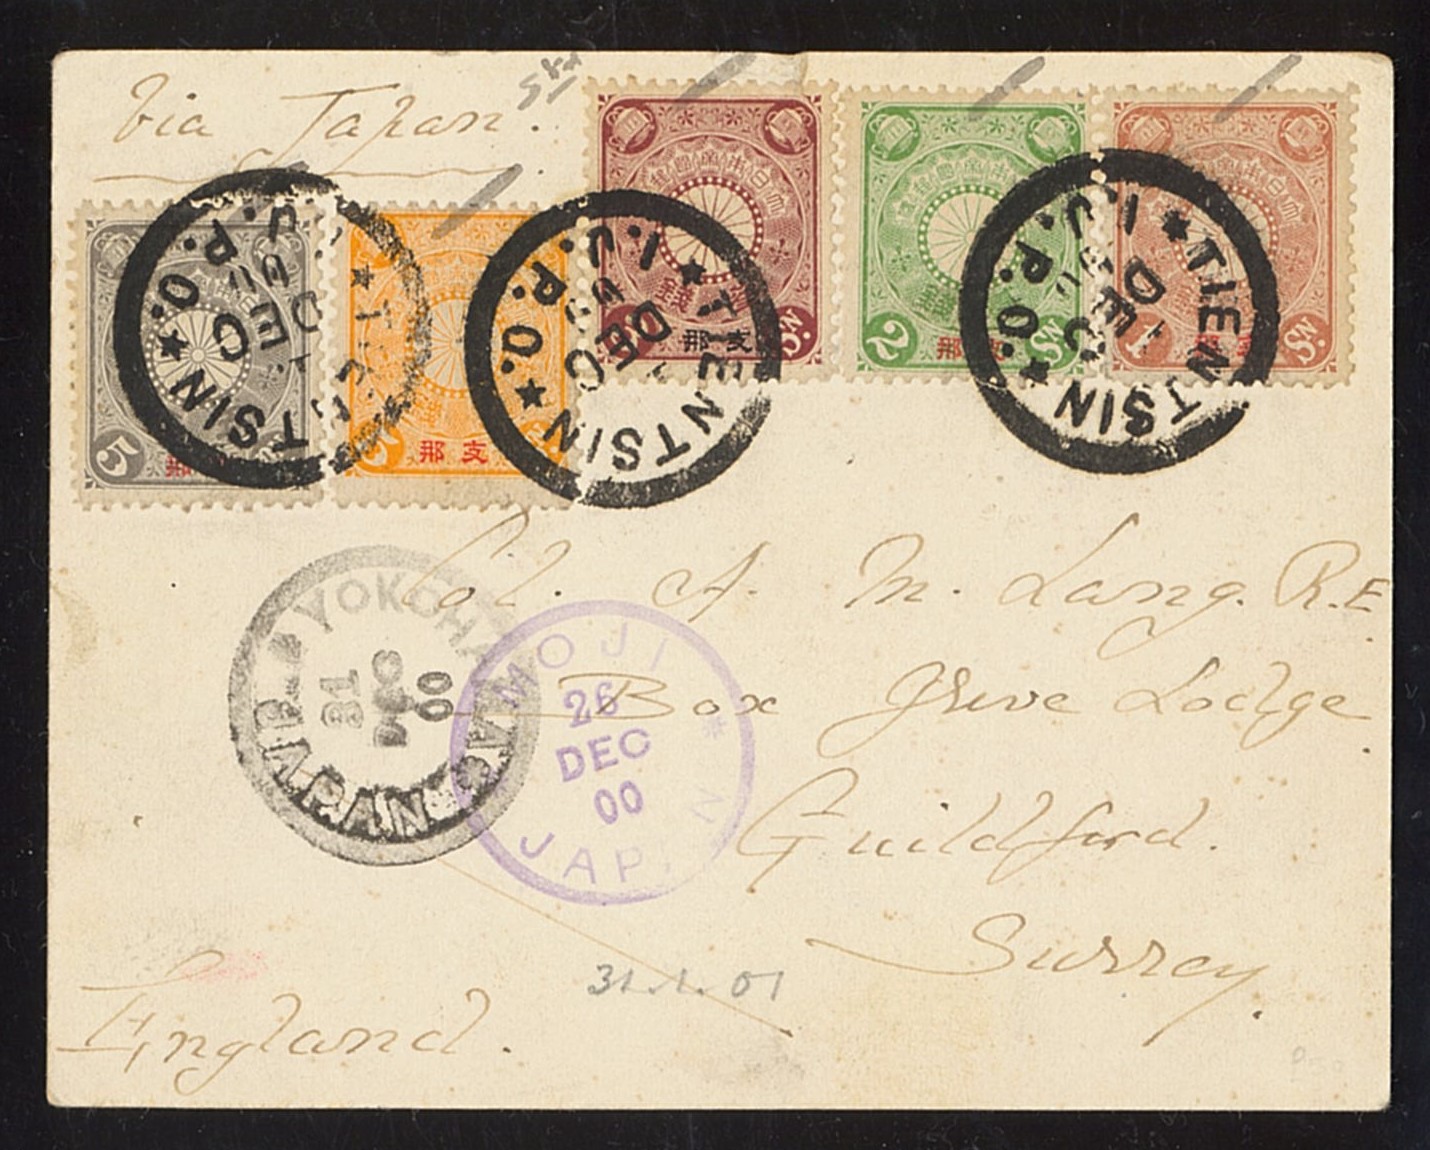 Via Japan.
5
支那
支那
2
支那
1
★ TIENTSIN ★
I.J.P.O.
1
DEC
★ TIENTSIN ★
I.J.P.O.
1
DEC
★ TIENTSIN ★
I.J.P.O.
1
DEC
Col. A. M. Lang. R.E
Box Grove Lodge
Guildford.
Surrey.
England.
YOKOHAMA
31
DEC
00
JAPAN
MOJI
26
DEC
00
JAPAN
31.1.01